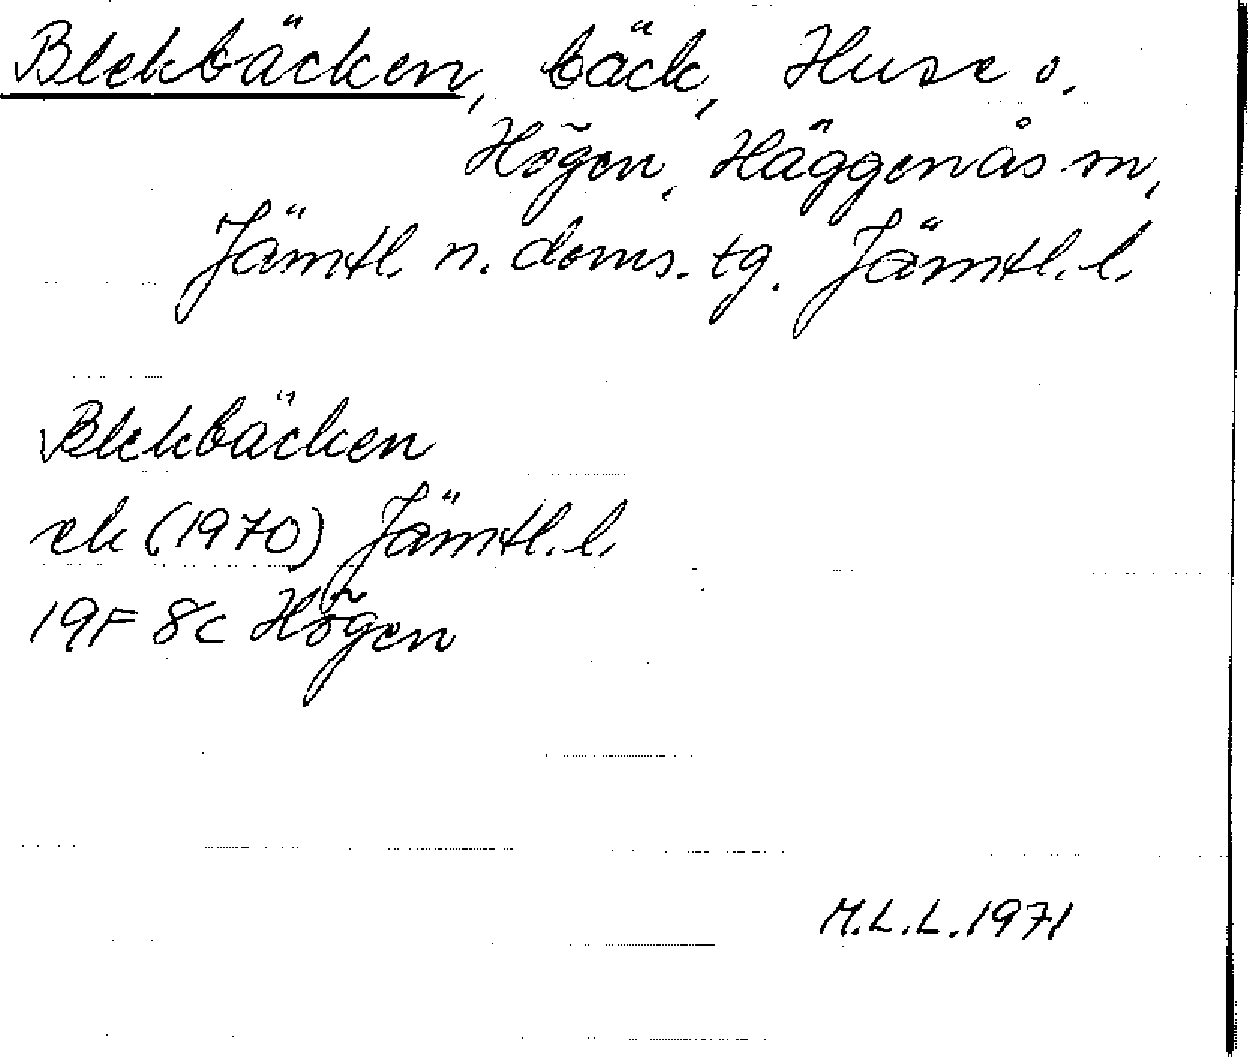 Blekbäcken, bäck, Huse o.
Högen, Häggenås sn,
Jämtl. n. doms. tg. Jämtl. l.
Blekbäcken
ek (1970) Jämtl. l.
19F 8c Högen
M.L.L. 1971